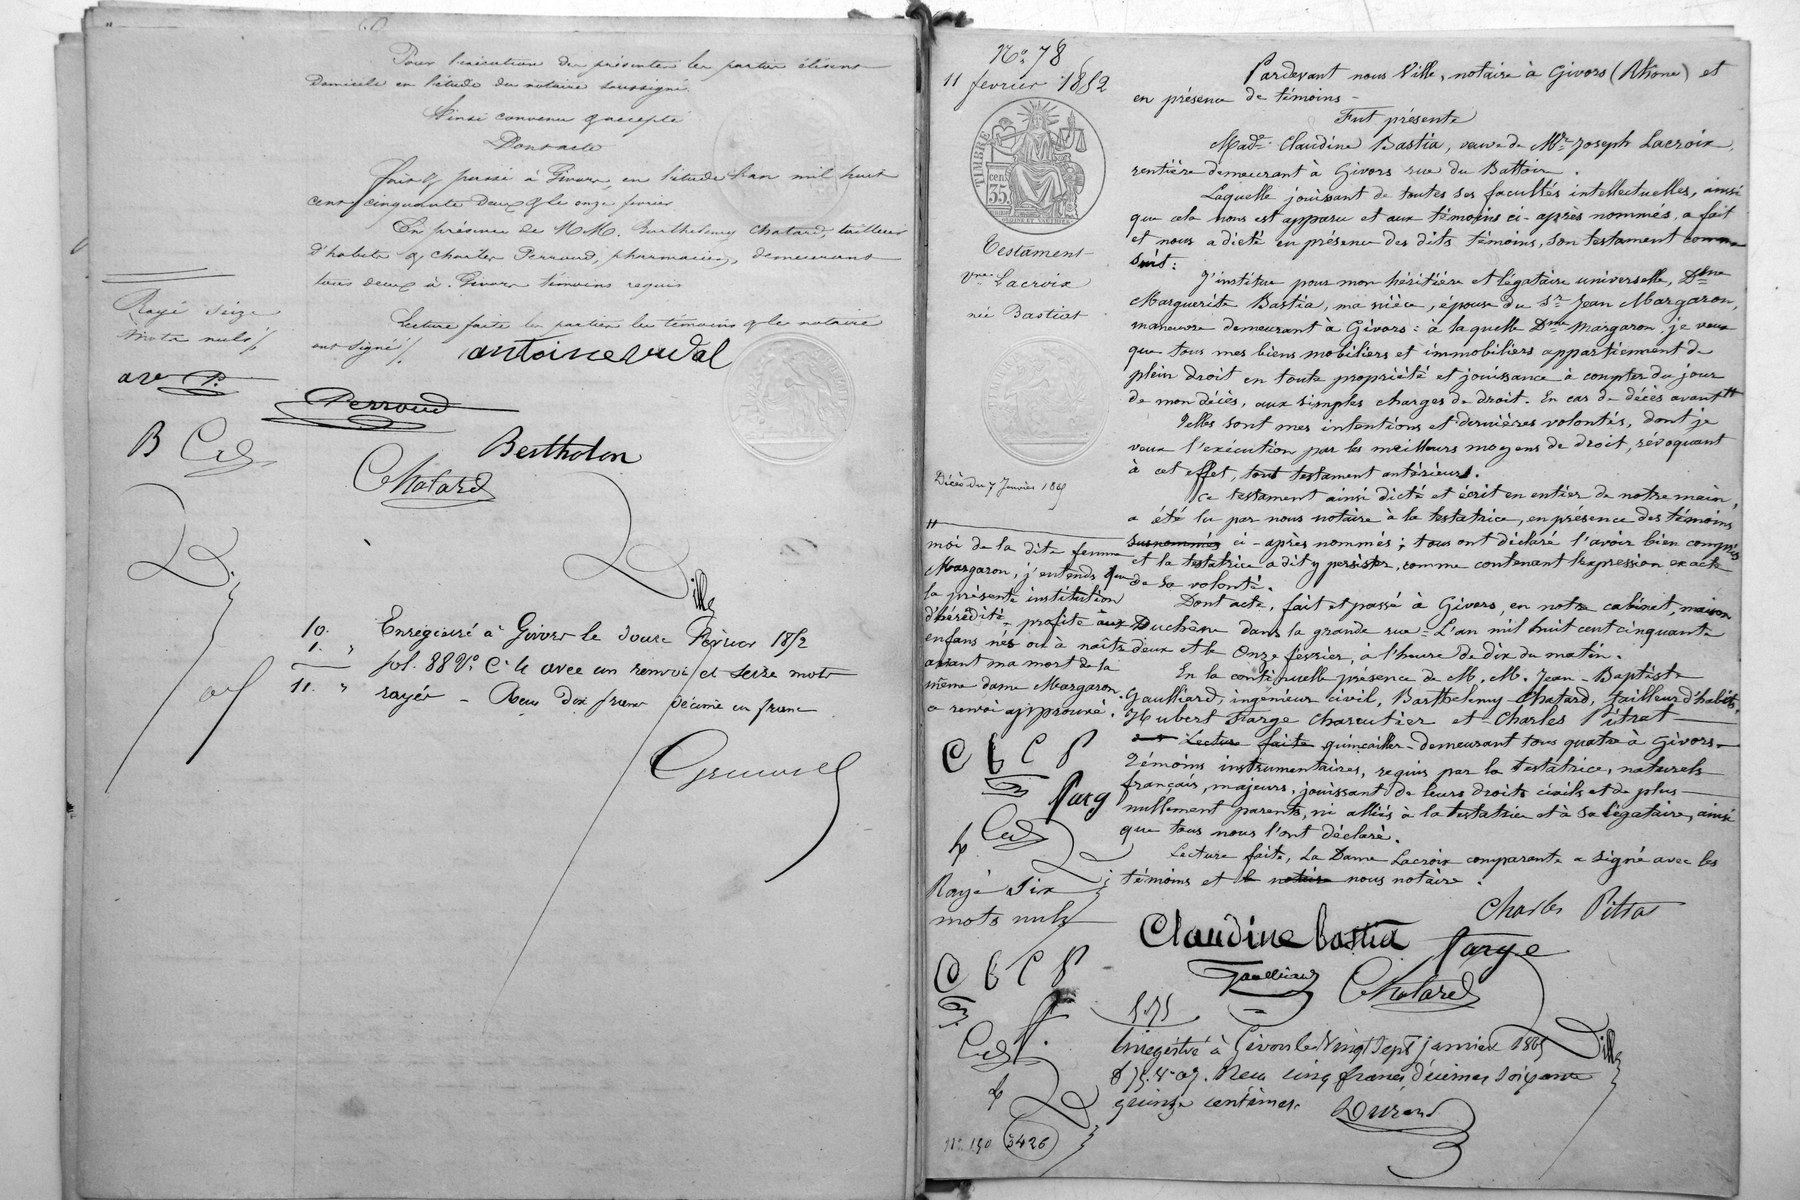 Pour l'exécution des présentes les parties élisent
Domicile en l'étude du notaire soussigné.
Ainsi convenu & accepté
Dont acte
fait & passé à Givors, en l'étude l'an mil huit
cent cinquante deux & le onze février
En présence de M.M. Barthelemy Chatard, tailleur
D'habits & Charles Perraud, pharmacien, demeurant
tous deux à Givors témoins requis
Lecture faite les parties les témoins & le notaire
ont signé
Rayé seize
mots nuls
antoine vidal
av P.
Perraud
B
Bertholon
Chatard
Ville
10.
1. "
11. "
Enregistré à Givors le douze février 1852
fol. 88 Vo C. 4 avec un renvoi et seize mots
rayés - Reçu Dix francs Décime un franc
No. 78
11 fevrier 1852
TIMBRE
35 cent
Testament
Vve Lacroix
née Bastiat
Décès du 7 Janvier 1865
Pardevant nous Ville, notaire à Givors (Rhone) et
en présence de témoins -
Fut présente
Made. Claudine Bastia, veuve de Mr. Joseph Lacroix,
rentière demeurant à Givors rue du Battoir.
Laquelle jouissant de toutes ses facultés intellectuelles, ainsi
que cela nous est apparu et aux témoins ci-après nommés, a fait
et nous a dicté en présence des dits témoins, son testament comme
suit:
J'institue pour mon héritière et légataire universelle, Dme
Marguerite Bastia, ma nièce, épouse du Sr. Jean Margaron,
manœuvre demeurant à Givors: à laquelle Dme Margaron je veux
que tous mes biens mobiliers et immobiliers appartiennent de
plein droit en toute propriété et jouissance à compter du jour
de mon décès, aux simples charges de droit. En cas de décès avant #
Telles sont mes intentions et dernières volontés, dont je
veux l'exécution par les meilleurs moyens de droit, révoquant
à cet effet, tout testament antérieur.
Ce testament ainsi dicté et écrit en entier de notre main,
a été lu par nous notaire à la testatrice, en présence des témoins
susnommés ci-après nommés; tous ont déclaré l'avoir bien compris
et la testatrice a dit y persister, comme contenant l'expression exacte
de sa volonté.
Dont acte, fait et passé à Givors, en notre cabinet, maison
Duchêne dans la grande rue. L'an mil huit cent cinquante
deux et le Onze février, à l'heure de dix du matin.
En la continuelle présence de M.M. Jean-Baptiste
Gaulliard, ingénieur civil, Barthelemy Chatard, tailleur d'habits,
Hubert Farge charcutier et Charles Pitrat
Lecture faite quincailler demeurant tous quatre à Givors
Témoins instrumentaires, requis par la testatrice, naturels
français, majeurs, jouissant de leurs droits civils et de plus
nullement parents, ni alliés à la testatrice et à sa légataire, ainsi
que tous nous l'ont déclaré.
Lecture faite, La Dame Lacroix comparante a signé avec les
témoins et le notaire nous notaire.
#
moi de la dite femme
Margaron, j'entends que
la présente institution
d'hérédité profite aux
enfans nés ou à naître
avant ma mort de la
même dame Margaron.
a renvoi approuvé.
C b C P
Farg
Rayé Six
mots nuls
C b C P
Charles Pitrat
Claudine Bastia
Farge
Gaulliard
Chatard
Ville
5.75
Enregistré à Givors le Vingt Sept janvier 1865
Reçu cinq francs, décimes soixante
quinze centimes.
Durand
No. 190
3426